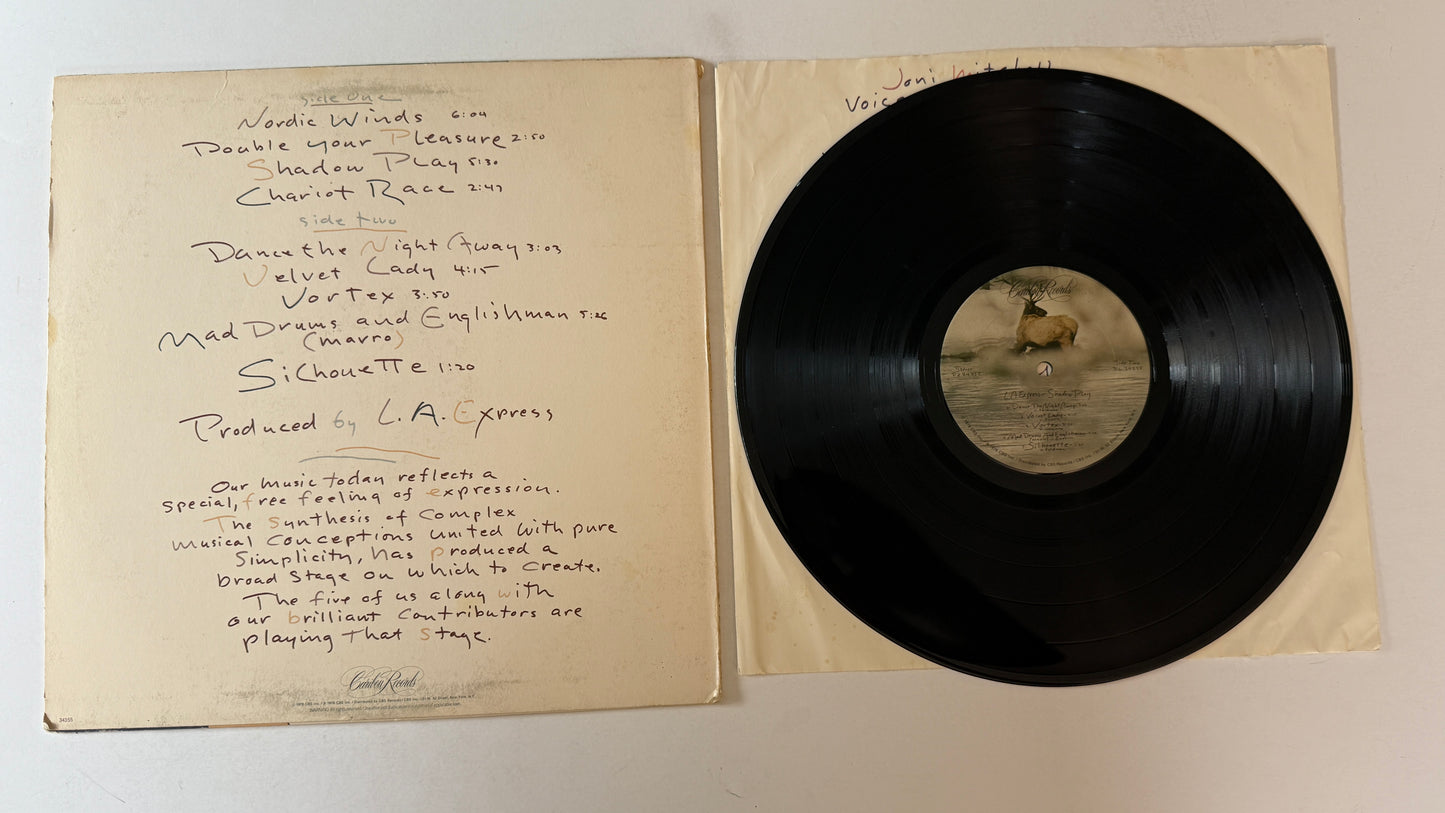 side one
Nordic Winds 6:04
Double your Pleasure 2:50
Shadow Play 5:30
Chariot Race 2:47
side two
Dance the Night Away 3:03
Velvet Lady 4:15
Vortex 3:50
Mad Drums and Englishman 5:26
(mavro)
Silhouette 1:20
Produced by L.A. Express
Our music today reflects a
special, free feeling of expression.
The synthesis of complex
musical conceptions united with pure
simplicity, has produced a
broad stage on which to create.
The five of us along with
our brilliant contributors are
playing that stage.
Caribou Records
34355
Joni Mitchell
Caribou Records
Stereo
Side Two
L.A. Express - Shadow Play
Dance The Night Away
Velvet Lady
Vortex
Mad Drums And Englishman
Silhouette